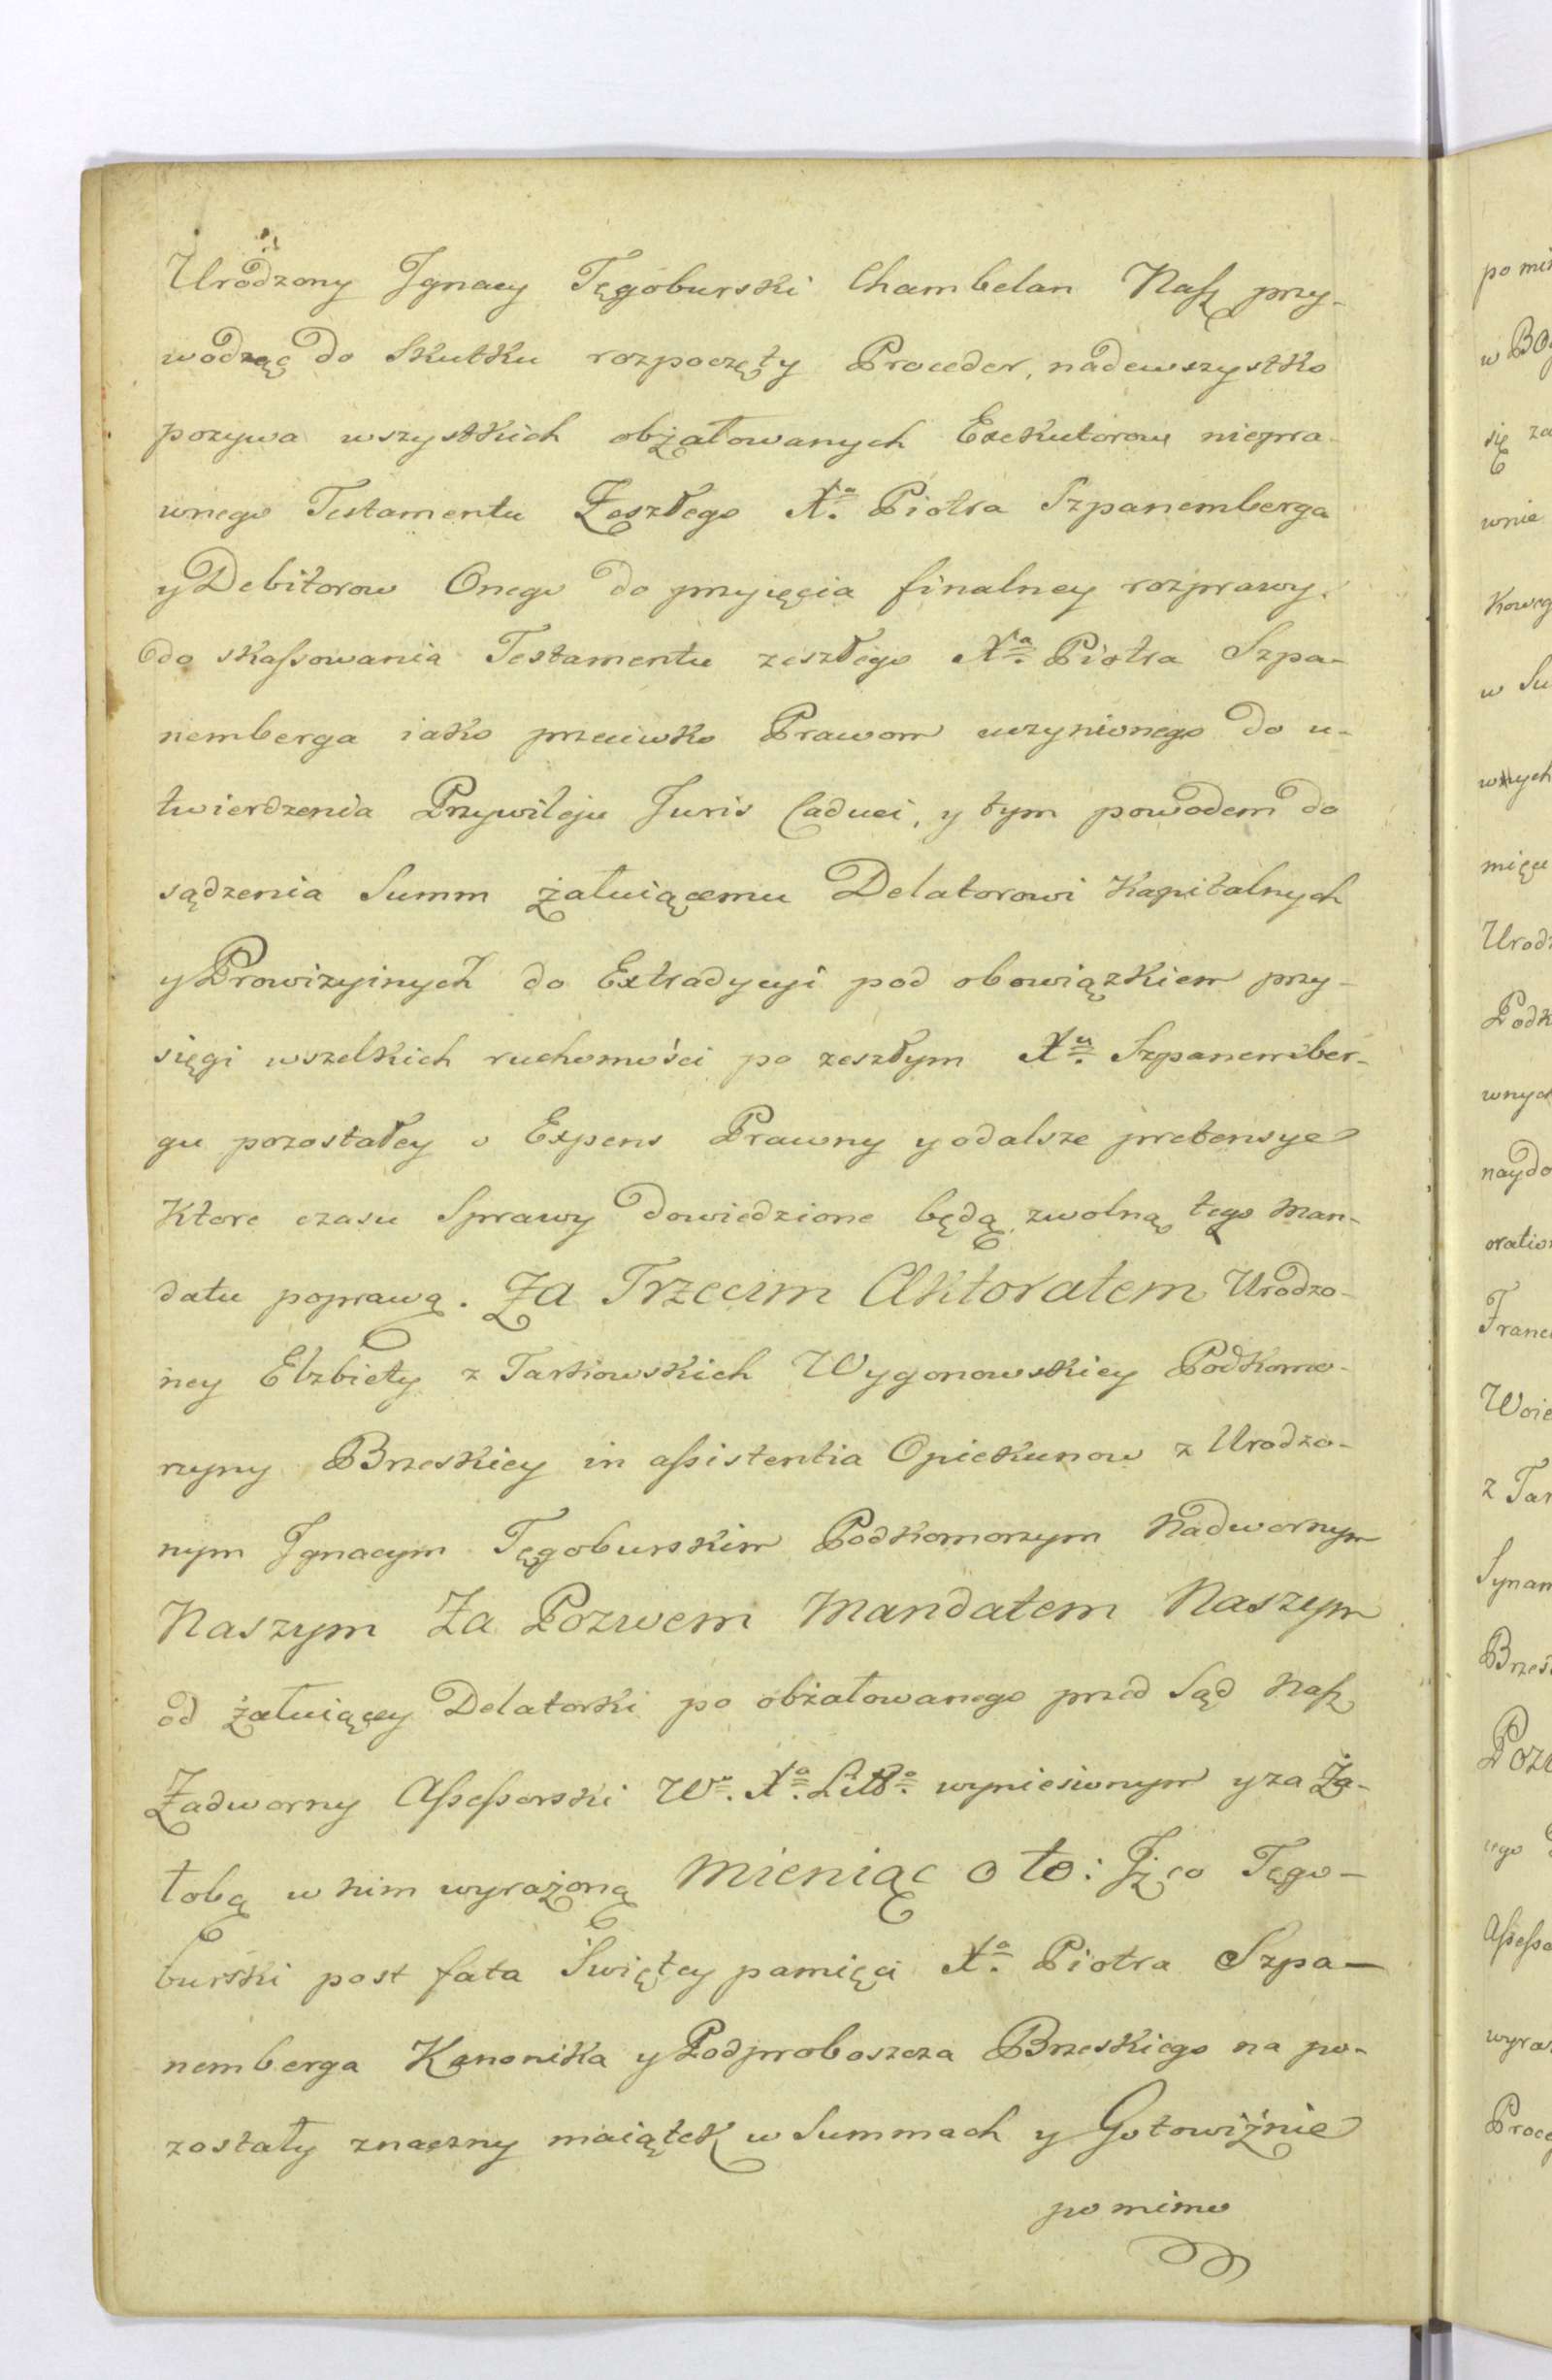 Urodzony Jgnacy Tęgoburski Chambelan Naſz przy-
wodząc do Skutku rozpoczęty Proceder, nadewszystko
pozywa wszystkich obżałowanych Exekutorow niepra-
wnego Testamentu Zeszłego Xa. Piotra Szpanemberga
y Debitorow Onego do przyięcia finalney rozprawy,
do skaſsowania Testamentu zeszłego Xa. Piotra Szpa-
nemberga iako przeciwko Prawom uczynionego do u-
twierdzenia Przywileju Juris Caduci, y tym powodem do
sądzenia Summ żałuiącemu Delatorowi Kapitalnych
y Prowizyinych do Extradycyi pod obowiązkiem przy-
sięgi wszelkich ruchomości po zeszłym Xu. Szpanember-
gu pozostałey o Expens Prawny y o dalsze pretensye
Ktore czasu Sprawy dowiedzione będą, zwolną tego Man-
datu poprawą. Za Trzecim Aktoratem Urodzo-
ney Elzbiety z Tarkowskich Wygonowskiey Podkomo-
rzyny Brzeskiey in aſsistentia Opiekunow z Urodzo-
nym Jgnacym Tęgoburskim Podkomorzym Nadwornym
Naszym Za Pozwem Mandatem Naszym
od żałuiącey Delatorki po obżałowanego przed Sąd Naſz
Zadworny Aſseſsorski Wo. Xa. Litto. wyniesionym y za Ża-
łobą w nim wyrażoną Mieniąc o to: Jż co Tęgo-
burski post fata Swiętey pamięci Xa. Piotra Szpa-
nemberga Kanonika y Podproboszcza Brzeskiego na po-
zostały znaczny maiątek w Summach y Gotowiźnie
pomimo
po mi
w BO
się za
wnie
Koweg
w Su
wnych
mięci
Urod
Podk
wnych
naydo
oratio
Franc
Woie
z Tar
Synam
Brzes
Poz
cego
Aſseſso
wyra
Proce